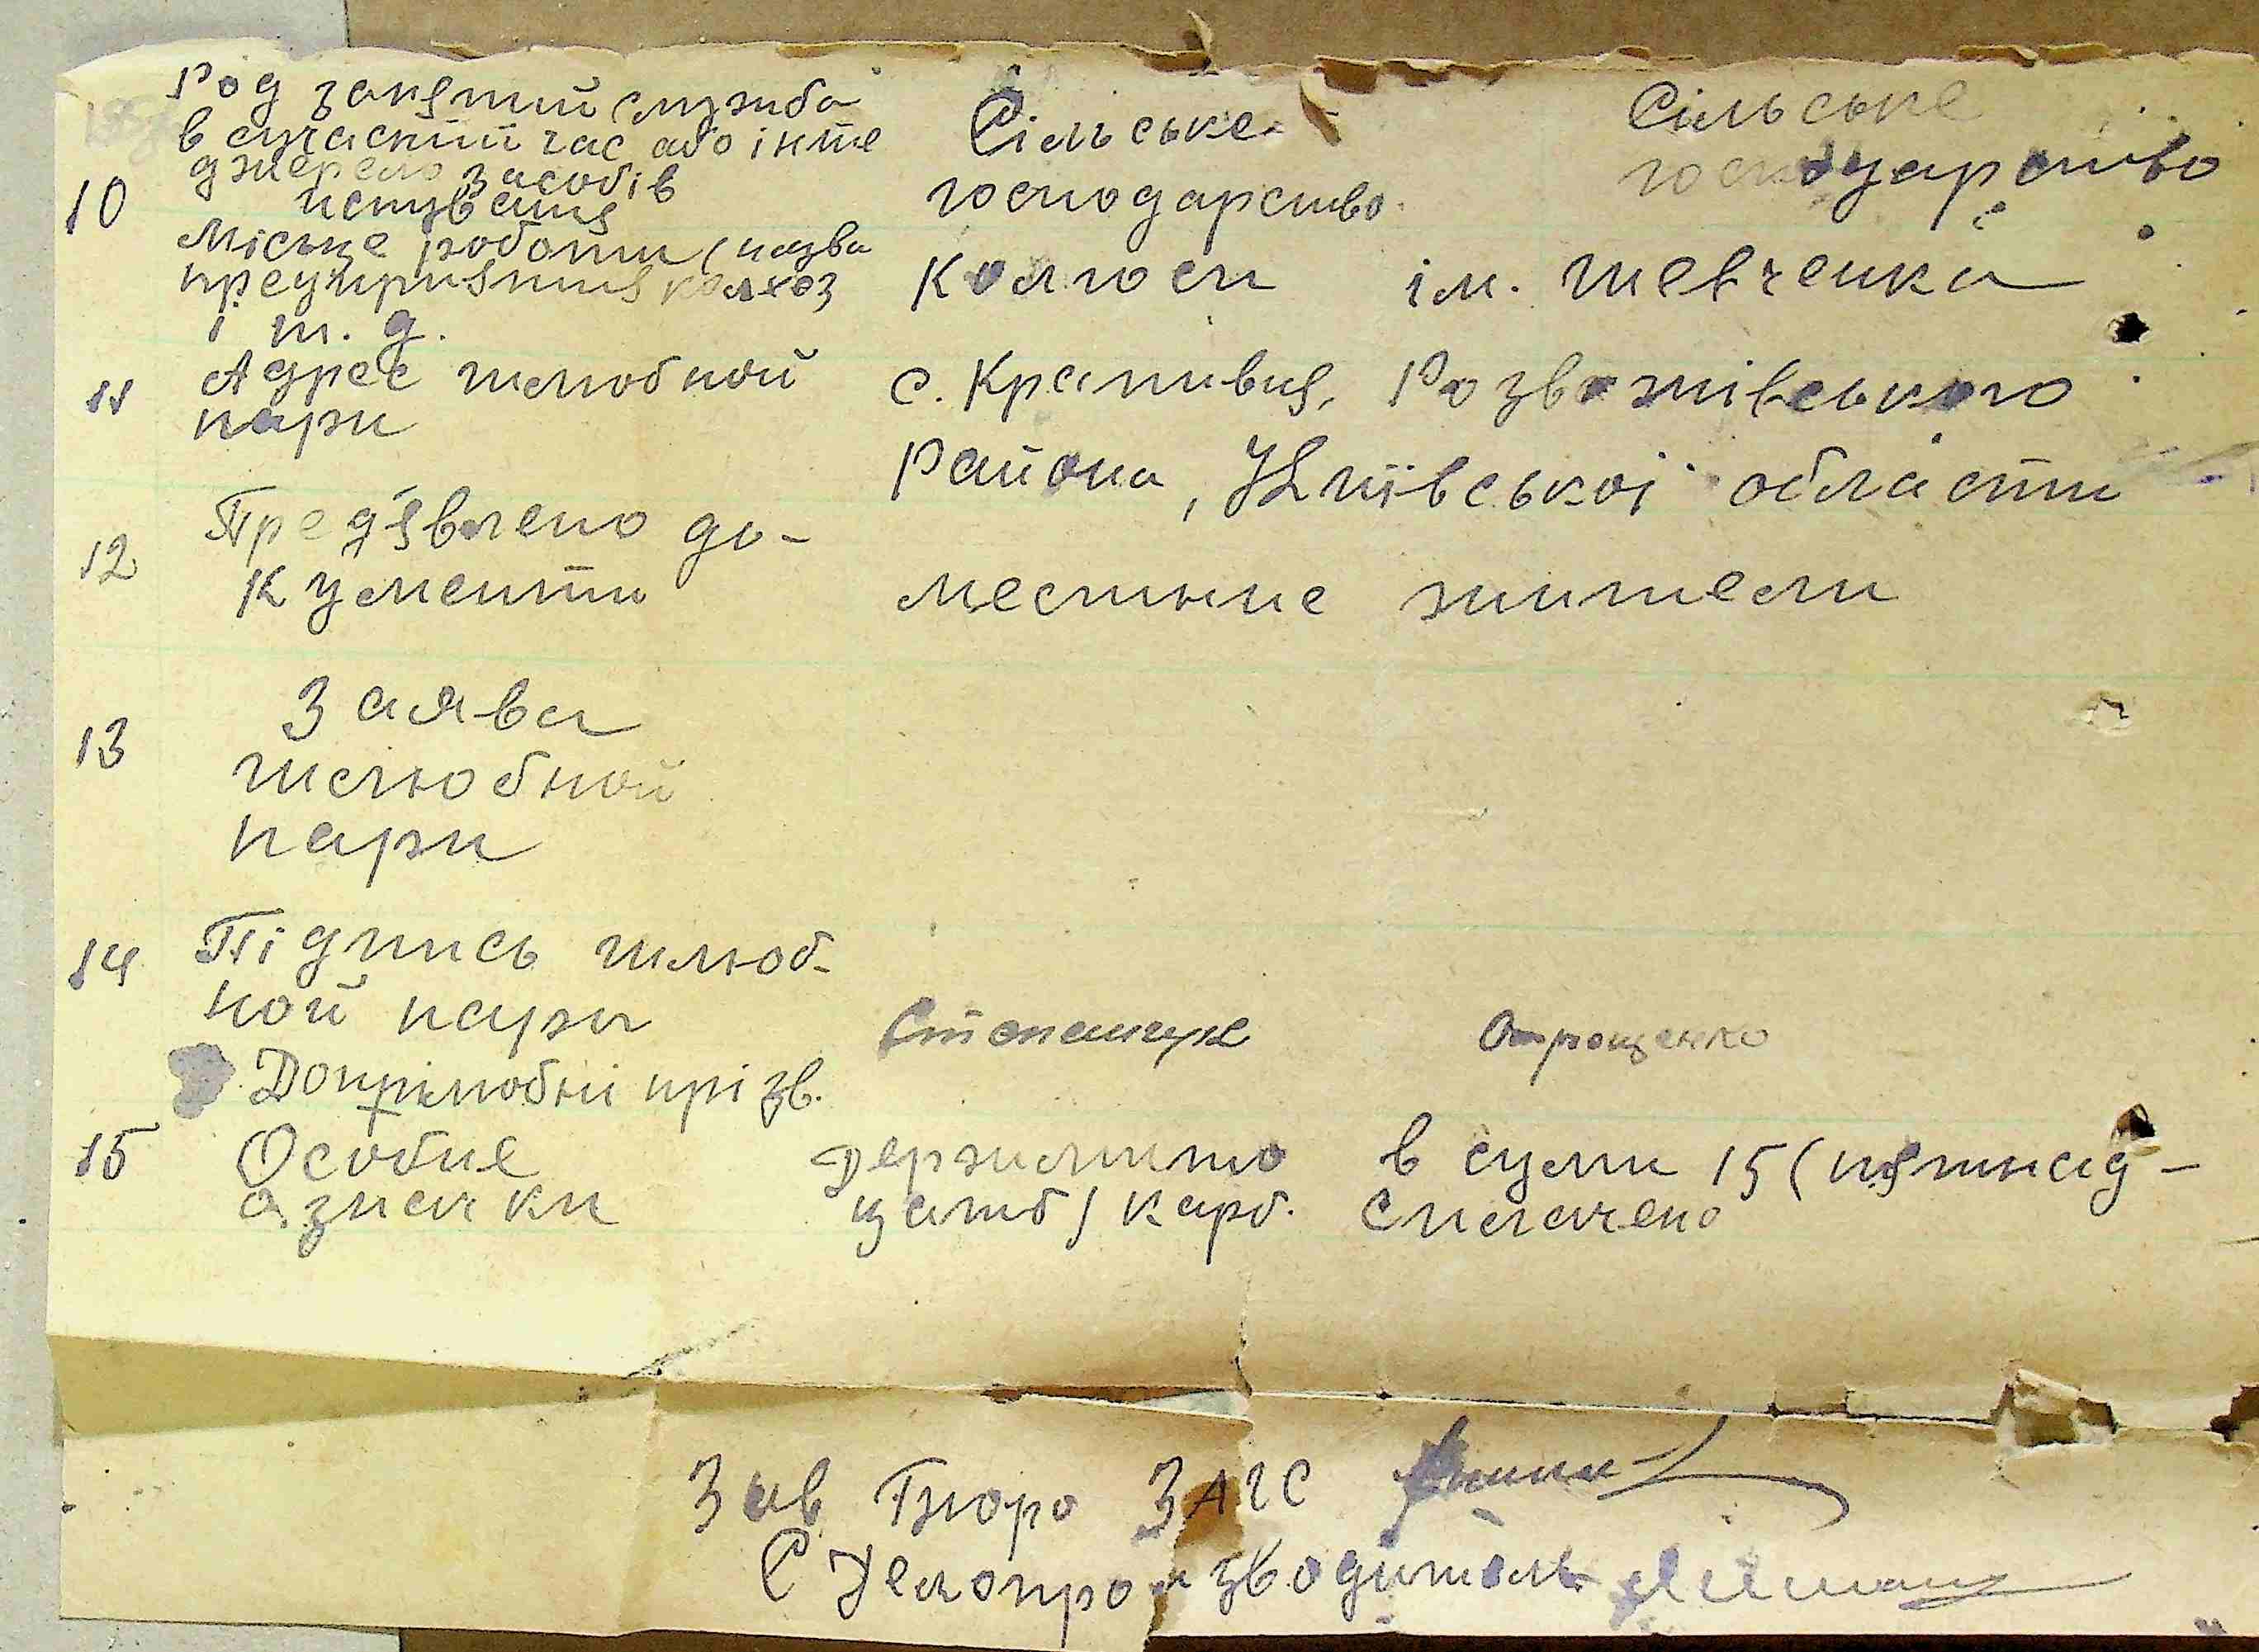 Род занятий служба
в сучасний час або інше
джерело засобів
Сільське
Сільське
10
існування
господарство
господарство
Місьце роботи (назва
предприятия колхоз
Колгосп ім. Шевченка
і т. д.
11 Адрес шлюбной
с. Крапивня, Розважівського
пари
Района, Київської области
12 Предявлено до-
кументи
местные жители
13 Заява
шлюбной
пари
14 Підпись шлюб-
ной пари
Степанчук Отрощенко
Дошлюбні прізв.
15 Особие
Держмито в суми 15 (пятнад-
азначки
цать) карб. Сплачено
Зав Бюро ЗАГС
С Делопроизводитель